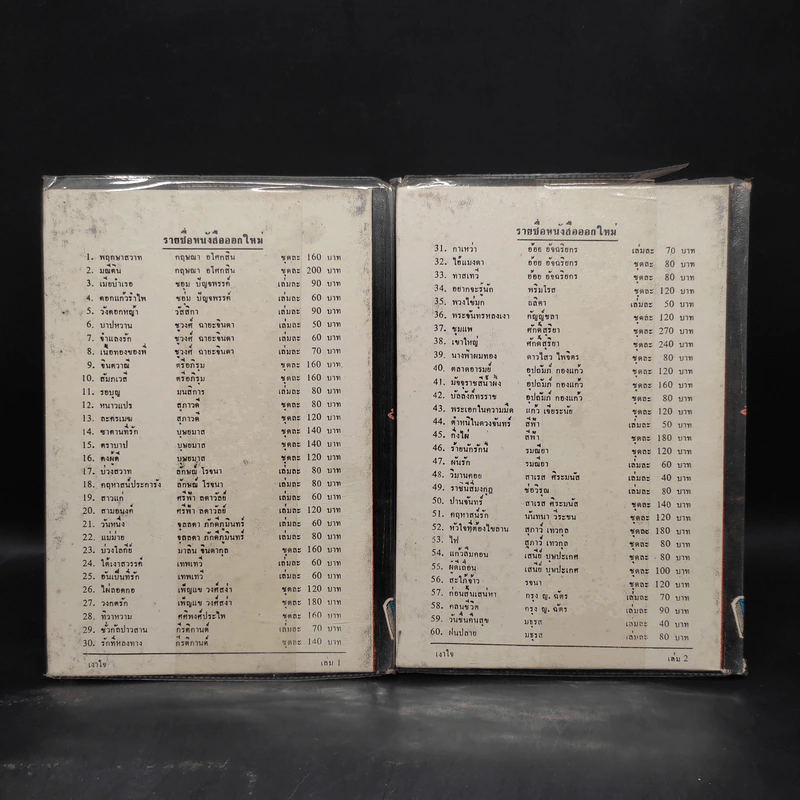 รายชื่อหนังสือออกใหม่
1. พฤกษาสวาท กฤษณา อโศกสิน ชุดละ 160 บาท
2. มณีดิน กฤษณา อโศกสิน ชุดละ 200 บาท
3. เมียบำเรอ ชอุ่ม ปัญจพรรค์ เล่มละ 90 บาท
4. ดอกแก้วรำไพ ชอุ่ม ปัญจพรรค์ เล่มละ 60 บาท
5. วังดอกหญ้า วัสสิกา เล่มละ 90 บาท
6. บาปหวาน ชูวงศ์ ฉายะจินดา เล่มละ 50 บาท
7. จำแลงรัก ชูวงศ์ ฉายะจินดา เล่มละ 60 บาท
8. เนื้อทองของพี่ ชูวงศ์ ฉายะจินดา เล่มละ 70 บาท
9. จินตวาณี ตรีอภิรุม ชุดละ 160 บาท
10. สัมภเวสี ตรีอภิรุม ชุดละ 160 บาท
11. รอบุญ มนสิการ เล่มละ 80 บาท
12. หนาวแปร สุภาวดี ชุดละ 80 บาท
13. ละครเมฆ สุภาวดี ชุดละ 120 บาท
14. ซาตานที่รัก บุษยมาส ชุดละ 140 บาท
15. ตราบาป บุษยมาส ชุดละ 140 บาท
16. ดงผู้ดี บุษยมาส ชุดละ 120 บาท
17. บ่วงสวาท ลักษณ์ โรจนา เล่มละ 80 บาท
18. คฤหาสน์ปะการัง ลักษณ์ โรจนา เล่มละ 80 บาท
19. สาวแก่ ศรีฟ้า ลดาวัลย์ เล่มละ 60 บาท
20. สามอนงค์ ศรีฟ้า ลดาวัลย์ ชุดละ 120 บาท
21. วันหนึ่ง จุลลดา ภักดีภูมินทร์ เล่มละ 60 บาท
22. แม่ม่าย จุลลดา ภักดีภูมินทร์ เล่มละ 80 บาท
23. บ่วงโลกีย์ มาลิน จินดากุล ชุดละ 160 บาท
24. ใต้เงาสวรรค์ เทพเทวี เล่มละ 60 บาท
25. อันเป็นที่รัก เทพเทวี เล่มละ 60 บาท
26. ไผ่ลอดกอ เพ็ญแข วงศ์สง่า ชุดละ 120 บาท
27. วงกตรัก เพ็ญแข วงศ์สง่า ชุดละ 180 บาท
28. ทิวาหวาม ศศิพงศ์ประไพ ชุดละ 160 บาท
29. ชั่วกัลปาวสาน กีรติกานต์ เล่มละ 70 บาท
30. รักที่หลงทาง กีรติกานต์ ชุดละ 140 บาท
เงาใจ เล่ม 1
รายชื่อหนังสือออกใหม่
31. กาเหว่า อ้อย อัจฉริยกร เล่มละ 70 บาท
32. ไอ้แมงดา อ้อย อัจฉริยกร ชุดละ 80 บาท
33. ทาสเทวี อ้อย อัจฉริยกร ชุดละ 80 บาท
34. อยากจะรู้นัก พริมโรส ชุดละ 120 บาท
35. พวงไข่มุก ถลิตา เล่มละ 50 บาท
36. พระจันทรหลงเงา กัญญ์ชลา ชุดละ 120 บาท
37. ชุมแพ ศักดิ์สุริยา ชุดละ 270 บาท
38. เขาใหญ่ ศักดิ์สุริยา ชุดละ 240 บาท
39. นางฟ้าผมทอง ดาวไสว ไพจิตร ชุดละ 80 บาท
40. ตลาดอารมย์ อุปถัมภ์ กองแก้ว ชุดละ 120 บาท
41. มัจจุราชสีน้ำผึ้ง อุปถัมภ์ กองแก้ว ชุดละ 160 บาท
42. บัลลังก์ทรราช อุปถัมภ์ กองแก้ว ชุดละ 80 บาท
43. พระเอกในความมืด แก้ว เจียระนัย ชุดละ 120 บาท
44. ตำหนิในดวงจันทร์ สีฟ้า เล่มละ 50 บาท
45. กิ่งไผ่ สีฟ้า ชุดละ 180 บาท
46. ร้ายนักรักนี้ รมณียา ชุดละ 120 บาท
47. ฝันรัก รมณียา เล่มละ 60 บาท
48. วิมานคอย สาเรส ศิระมนัส เล่มละ 40 บาท
49. ราชินีสี่มงกุฎ ช่อวิรุณ เล่มละ 80 บาท
50. ปานจันทร์ สาเรส ศิระมนัส ชุดละ 140 บาท
51. คฤหาสน์รัก นันทนา วีระชน ชุดละ 120 บาท
52. หัวใจที่ต้องไขลาน สุภาว์ เทวกุล ชุดละ 180 บาท
53. ไฟ สุภาว์ เทวกุล ชุดละ 80 บาท
54. แก้วลืมคอน เสนีย์ บุษปะเกศ ชุดละ 80 บาท
55. ผู้ดีเถื่อน เสนีย์ บุษปะเกศ ชุดละ 100 บาท
56. สะใภ้จ้าว รจนา ชุดละ 120 บาท
57. ก่อนสิ้นเสน่หา กรุง ญ. ฉัตร เล่มละ 70 บาท
58. คลื่นชีวิต กรุง ญ. ฉัตร เล่มละ 90 บาท
59. วันชื่นคืนสุข มธุรส เล่มละ 40 บาท
60. ฝนปลาย มธุรส เล่มละ 80 บาท
เงาใจ เล่ม 2